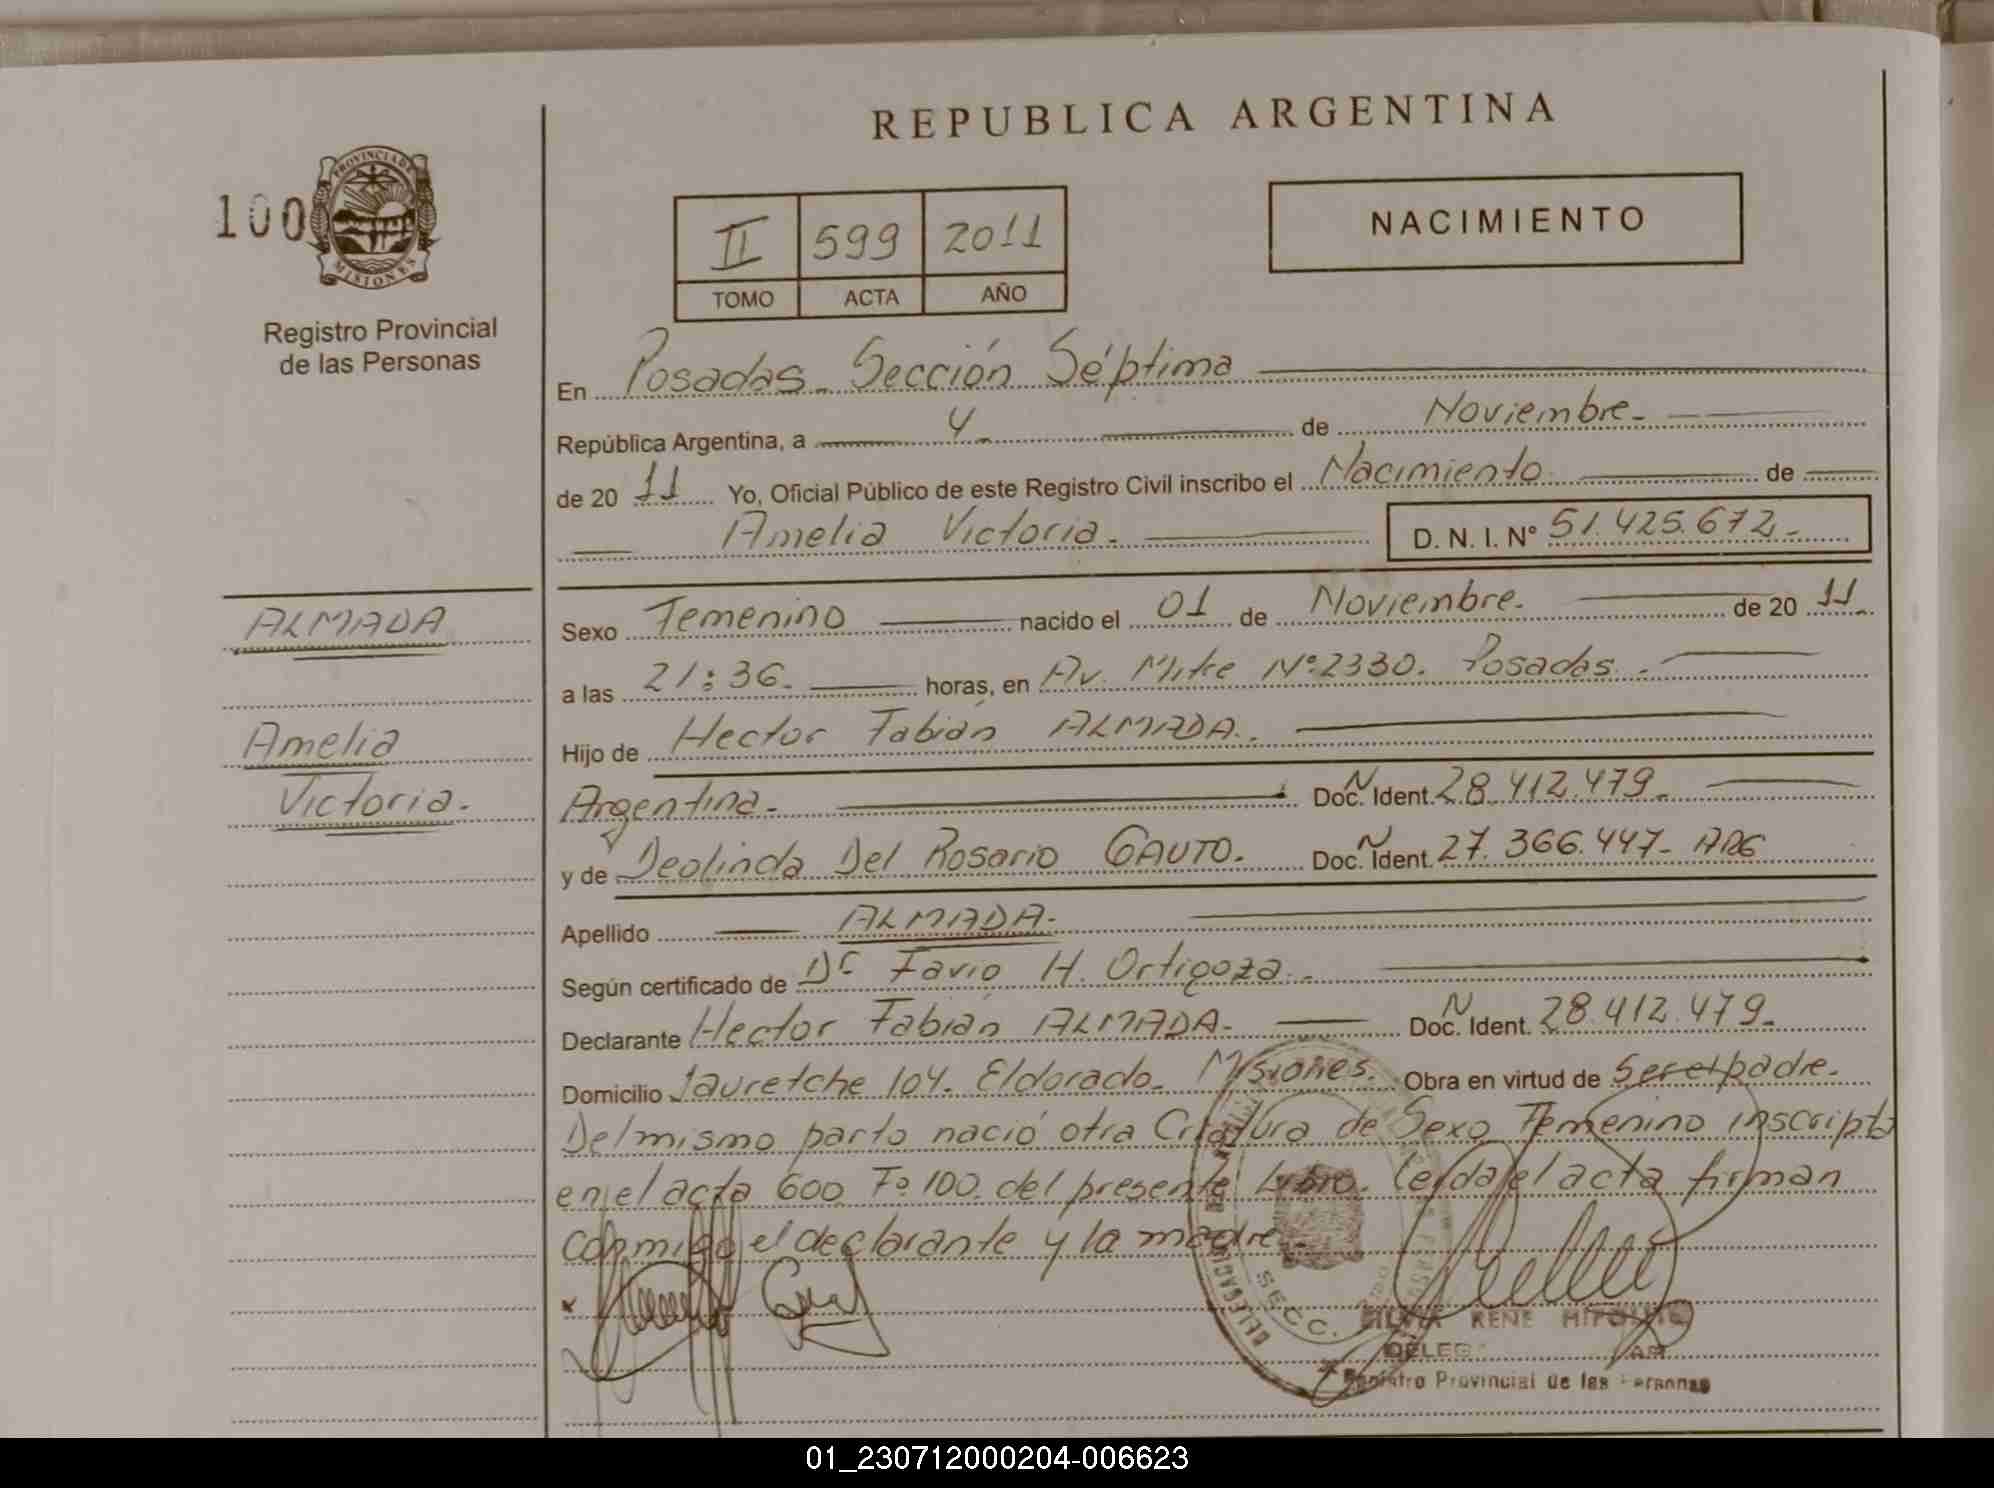 REPUBLICA ARGENTINA
100
PROVINCIA DE
MISIONES
Registro Provincial
de las Personas
II 599 2011
TOMO ACTA AÑO
NACIMIENTO
En Posadas - Sección Séptima
República Argentina, a 4 - de Noviembre -
de 20 11 Yo, Oficial Público de este Registro Civil inscribo el Nacimiento de
Amelia Victoria - D. N. I. Nº 51.425.672 -
ALMADA
Amelia
Victoria -
Sexo Femenino nacido el 01 de Noviembre - de 20 11
a las 21:36 - horas, en Av. Mitre Nº 2330. Posadas -
Hijo de Hector Fabián ALMADA -
Argentina - Doc. Ident. N 28.412.479 -
y de Deolinda Del Rosario GAUTO - Doc. Ident. Ñ 27.366.447 - ARG
Apellido ALMADA -
Según certificado de Dr Favio H. Ortigoza -
Declarante Hector Fabián ALMADA - Doc. Ident. N 28.412.479 -
Domicilio Jauretche 104. Eldorado - Misiones. Obra en virtud de Ser el padre -
Del mismo parto nació otra Criatura de Sexo Femenino inscripta
en el acta 600 Fº 100 del presente Libro. Leída el acta firman
conmigo el declarante y la madre -
DELEGACION
SECC.
SILVIA RENE HIPOLITO
Registro Provincial de las Personas
01_230712000204-006623